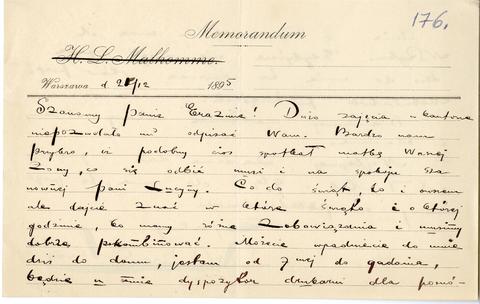 176.
Memorandum
H. L. Malhomme.
Warszawa d. 21/12 1895
Szanowny Panie Erazmie! Dużo zajęcia w kantorze
niepozwalało mi odpisać Wam. Bardzo nam
przykro, iż podobny cios spotkał matkę Waszej
Żony, co się odbić musi i na spokoju sza
nownej Pani Lucyny. Co do świąt, to i owszem
ale dajcie znać w które święto i o której
godzinie, bo mamy różne zobowiązania i musimy
dobrze pokombinować. Możecie wpadniecie do mnie
dziś do domu, jestem od 7 mej do gadania,
będzie u mnie dyspozytor drukarni dla pomó-